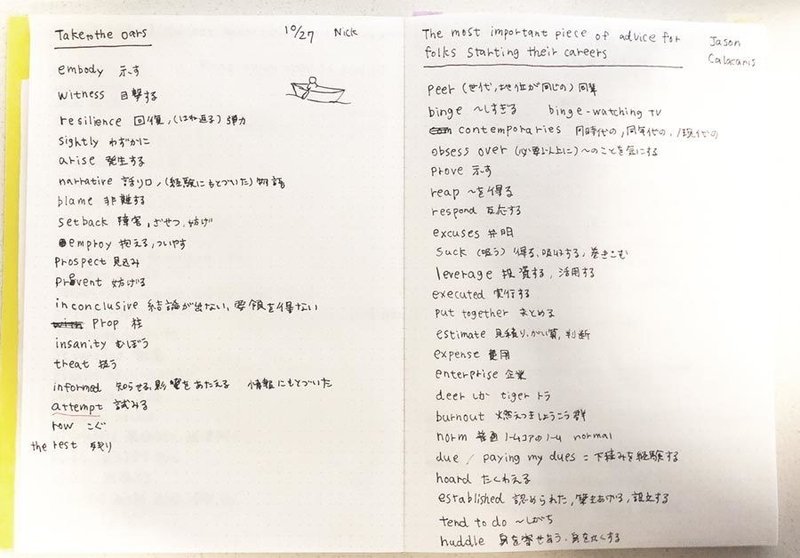 Take the oars 10/27 Nick
embody 示す
witness 目撃する
resilience 回復,(はね返る) 弾力
sightly わずかに
arise 発生する
narrative 語り口,(経験にもとづいた) 物語
blame 非難する
setback 障害, ざせつ, 妨げ
employ 抱える, ついやす
prospect 見込み
prevent 妨げる
inconclusive 結論が出ない, 要領を得ない
prop 柱
insanity むぼう
treat 扱う
informed 知らせる, 影響をあたえる 情報にもとづいた
attempt 試みる
row こぐ
the rest 残り
The most important piece of advice for
folks starting their careers
Jason
Calacanis
peer (世代, 地位が同じの) 同輩
binge 〜しすぎる binge-watching TV
contemporaries 同時代の, 同年代の, 現代の
obsess over (必要以上に) 〜のことを気にする
prove 示す
reap 〜を得る
respond 反応する
excuses 弁明
suck (吸う) 得る, 吸収する, 巻きこむ
leverage 投資する, 活用する
executed 実行する
put together まとめる
estimate 見積り, がい算, 判断
expense 費用
enterprise 企業
deer しか tiger トラ
burnout 燃えつきしょうこう群
norm 普通 ノームコアのノーム normal
due / paying my dues = 下積みを経験する
hoard たくわえる
established 認められた, 築きあげる, 設立する
tend to do 〜しがち
huddle 身を寄せあう, 身を丸くする